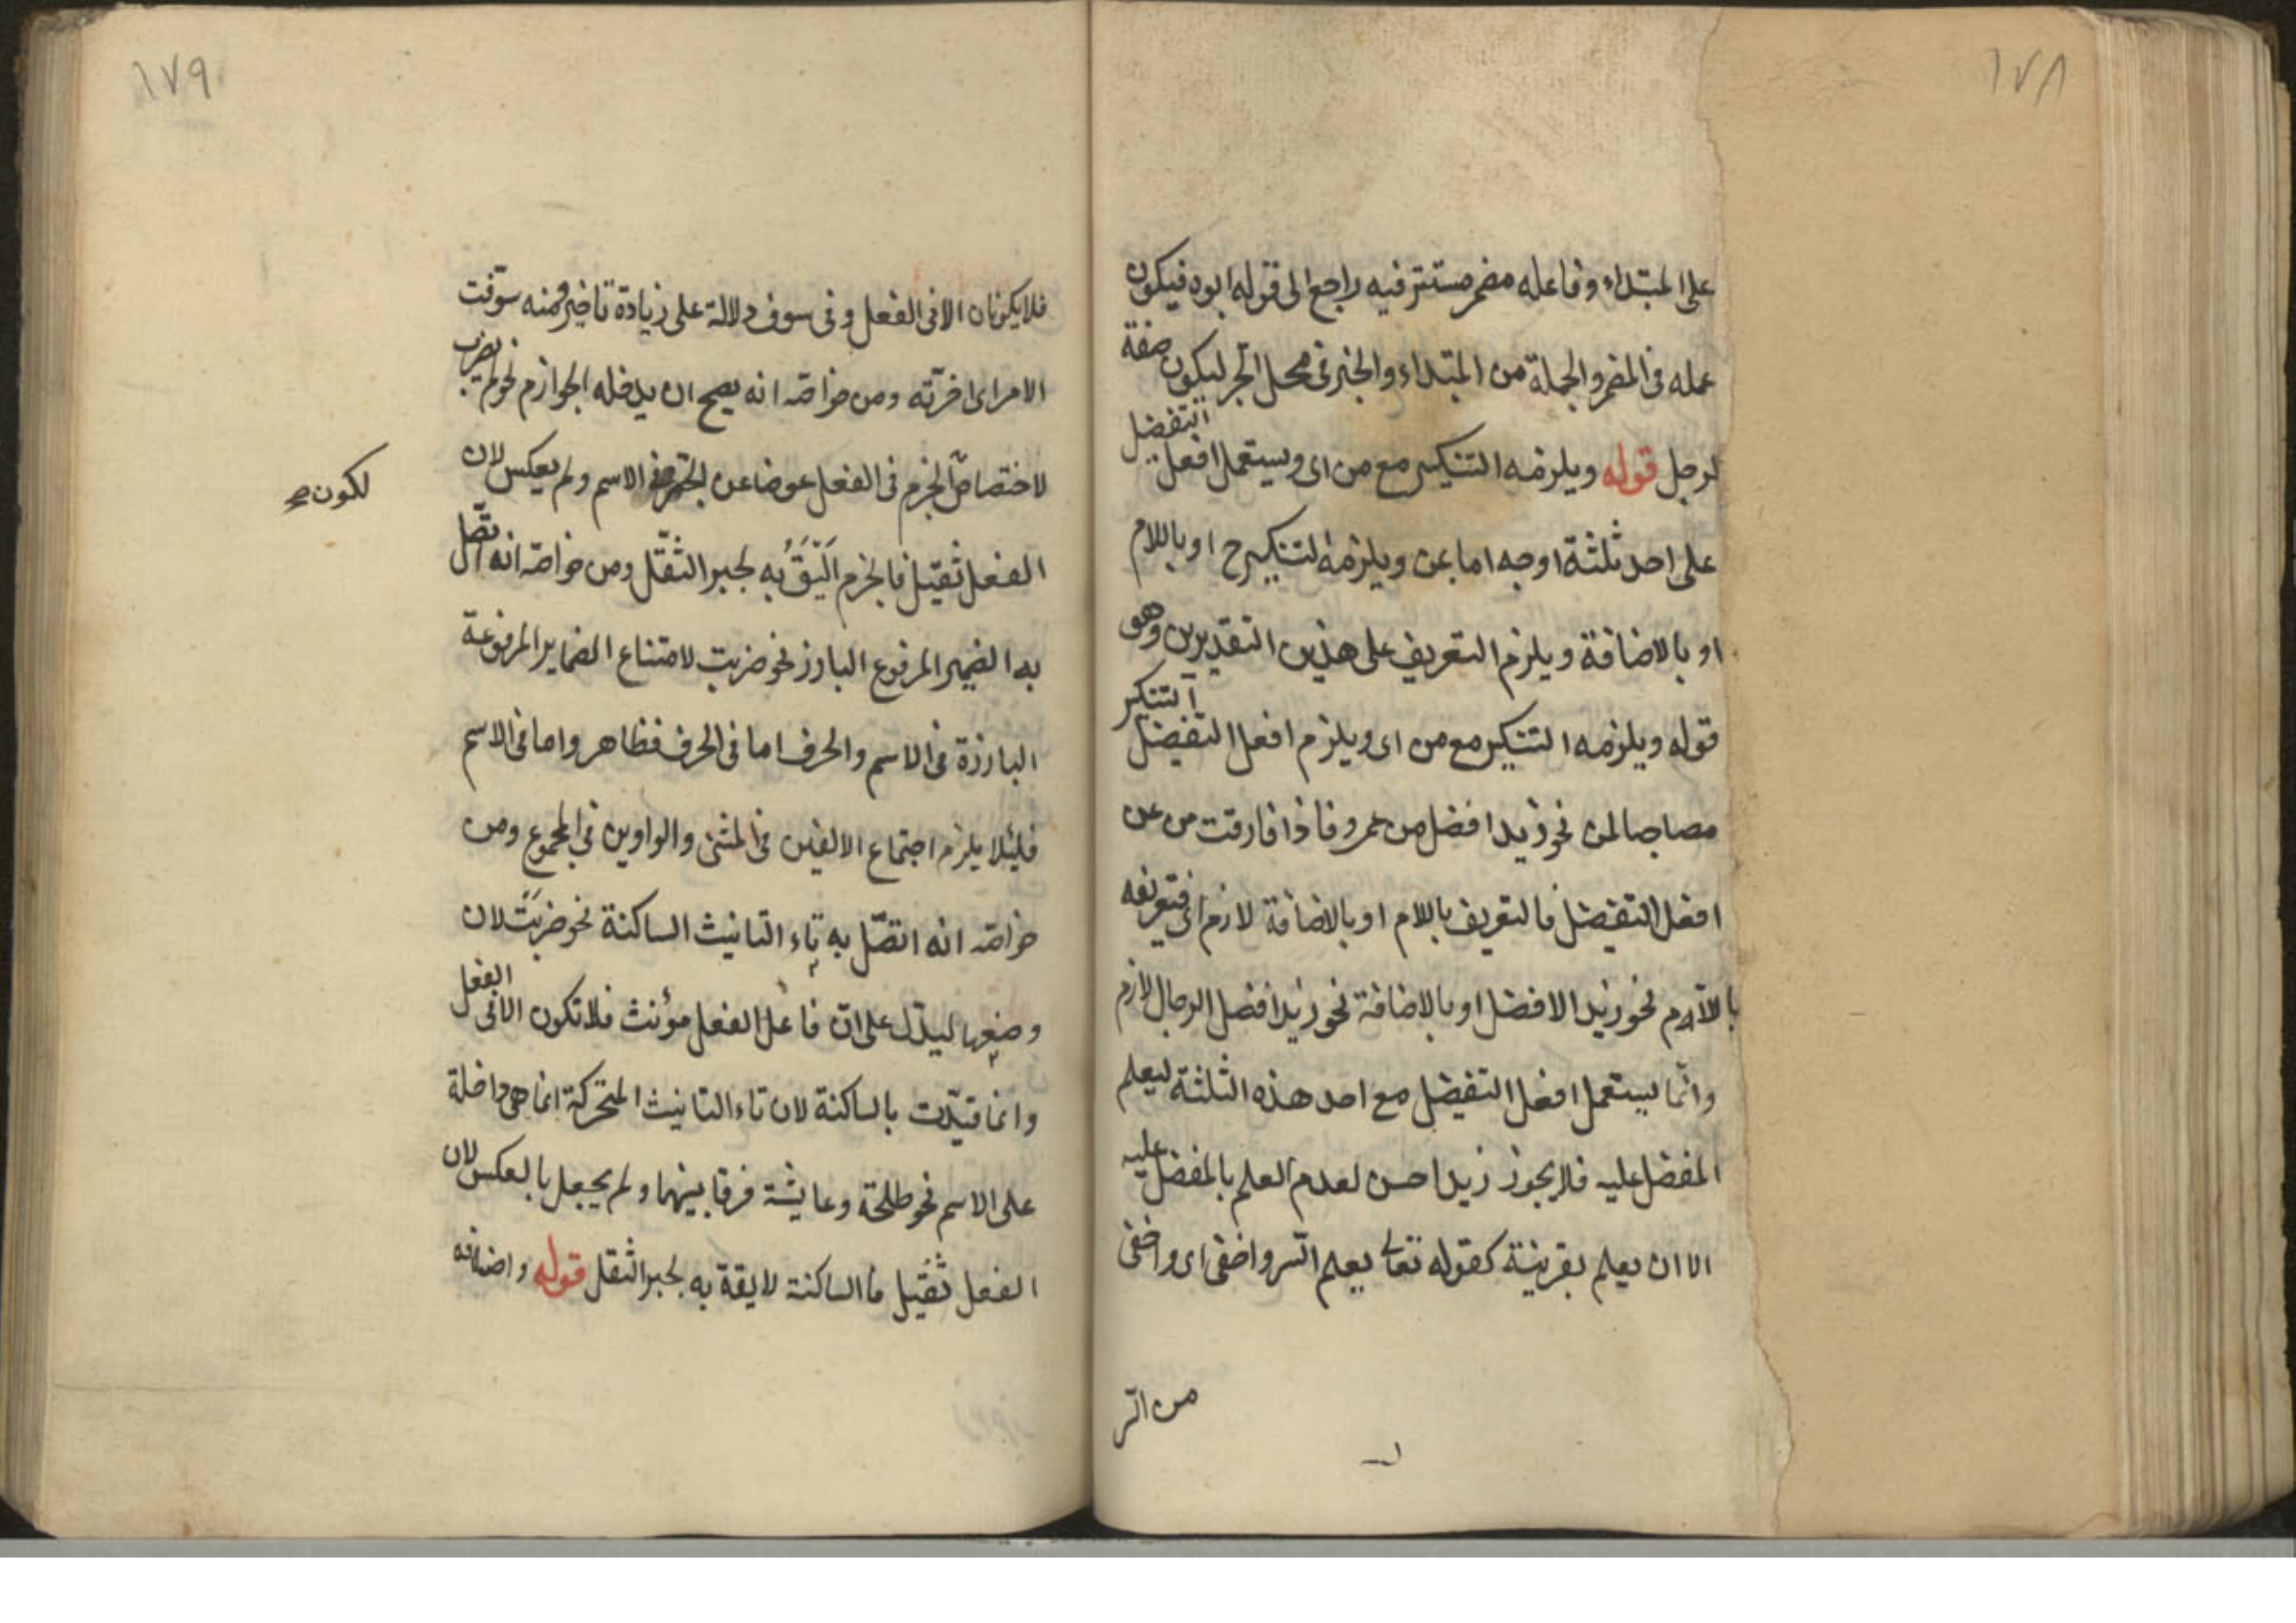 ١٧٨
على المبتداء وفاعله مضمر مستتر فيه راجع الى قوله ابوه فيكون
عمله فى المضمر والجملة من المبتداء والخبر فى محل الجر ليكون صفة
لرجل قوله ويلزمه التنكير مع من اى ويستعمل افعل التفضيل
على احد ثلثة اوجه اما بمن ويلزمه التنكير ح او باللام
او بالاضافة ويلزم التعريف على هذين التقديرين وهو
قوله ويلزمه التنكير مع من اى ويلزم افعل التفضيل التنكير
مصاحبا لمن نحو زيد افضل من عمرو فاذا فارقت من عن
افعل التفضيل فالتعريف باللام او بالاضافة لازم اى فتعريفه
باللام نحو زيد الافضل او بالاضافة نحو زيد افضل الرجال لازم
وانما يستعمل افعل التفضيل مع احد هذه الثلثة ليعلم
المفضل عليه فلا يجوز زيد احسن لعدم العلم بالمفضل عليه
الا ان يعلم بقرينة كقوله تعالى يعلم السر واخفى اى واخفى
من السر
١٧٩
فلا يكونان الا فى الفعل وفى سوف دلالة على زيادة تاخير ومنه سوّفت
الامر اى اخّرته ومن خواصه انه يصح ان يدخله الجوازم نحو لم يضرب
لاختصاص الجزم فى الفعل عوضا عن الجر فى الاسم ولم يعكس لان
لكون صح
الفعل ثقيل فالجزم اَلْيَقُ به لجبر الثقل ومن خواصه انه اتصل
به الضمير المرفوع البارز نحو ضربت لامتناع الضماير المرفوعة
البارزة فى الاسم والحرف اما فى الحرف فظاهر واما فى الاسم
فلئلا يلزم اجتماع الالفين فى المثنى والواوين فى المجموع ومن
خواصه انه اتصل به تاء التانيث الساكنة نحو ضربَتْ لان
وضعها ليدل على ان فاعل الفعل مؤنث فلا تكون الا فى الفعل
وانما قيّدت بالساكنة لان تاء التانيث المتحركة انما هى داخلة
على الاسم نحو طلحة وعايشة فرقا بينهما ولم يجعل بالعكس لان
الفعل ثقيل فالساكنة لايقة به لجبر الثقل قوله واضافه